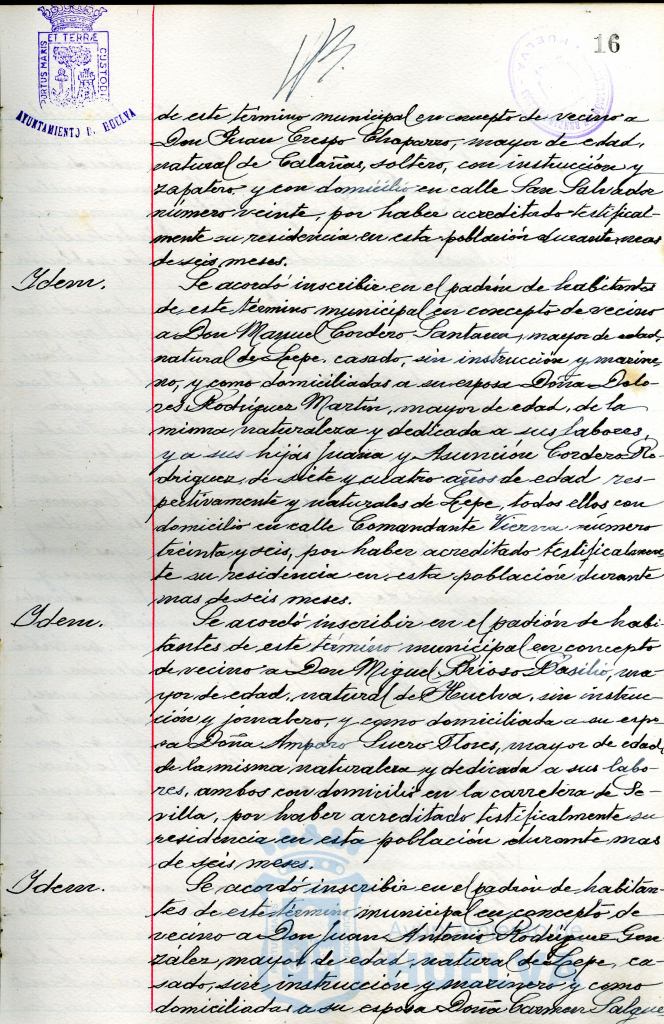 16
PORTUS MARIS ET TERRÆ CUSTODIA
AYUNTAMIENTO D. HUELVA
de este término municipal en concepto de vecino a
Don Juan Crespo Chaparro, mayor de edad,
natural de Calañas, soltero, con instrucción y
zapatero y con domicilio en calle San Salvador
número veinte, por haber acreditado testifical-
mente su residencia en esta población durante mas
de seis meses.
Idem.
Se acordó inscribir en el padrón de habitantes
de este término municipal en concepto de vecino
a Don Manuel Cordero Santana, mayor de edad,
natural de Lepe, casado, sin instrucción y marine-
ro, y como domiciliadas a su esposa Doña Dolo-
res Rodríguez Martín, mayor de edad, de la
misma naturaleza y dedicada a sus labores,
y a sus hijas Juana y Asunción Cordero Ro-
dríguez, de siete y cuatro años de edad res-
pectivamente y naturales de Lepe, todos ellos con
domicilio en calle Comandante Vierna número
treinta y seis, por haber acreditado testificalmen-
te su residencia en esta población durante
mas de seis meses.
Idem.
Se acordó inscribir en el padrón de habi-
tantes de este término municipal en concepto
de vecino a Don Miguel Brioso Basilio, ma-
yor de edad, natural de Huelva, sin instruc-
ción y jornalero, y como domiciliada a su espo-
sa Doña Amparo Suero Flores, mayor de edad,
de la misma naturaleza y dedicada a sus labo-
res, ambos con domicilio en la carretera de Se-
villa, por haber acreditado testificalmente su
residencia en esta población durante mas
de seis meses.
Idem.
Se acordó inscribir en el padrón de habitan-
tes de este término municipal en concepto de
vecino a Don Juan Antonio Rodríguez Gon-
zález, mayor de edad, natural de Lepe, ca-
sado, sin instrucción y marinero y como
domiciliadas a su esposa Doña Carmen Salgue
Ayuntamiento de
HUELVA